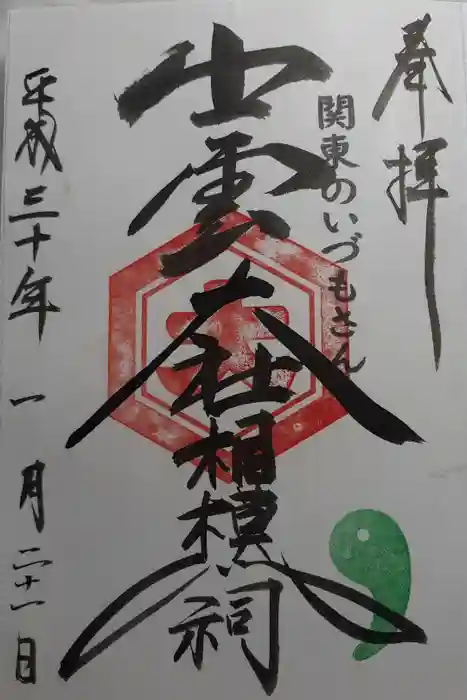 奉拝
関東のいづもさん
出雲大社相模分祠
平成三十年一月二十一日